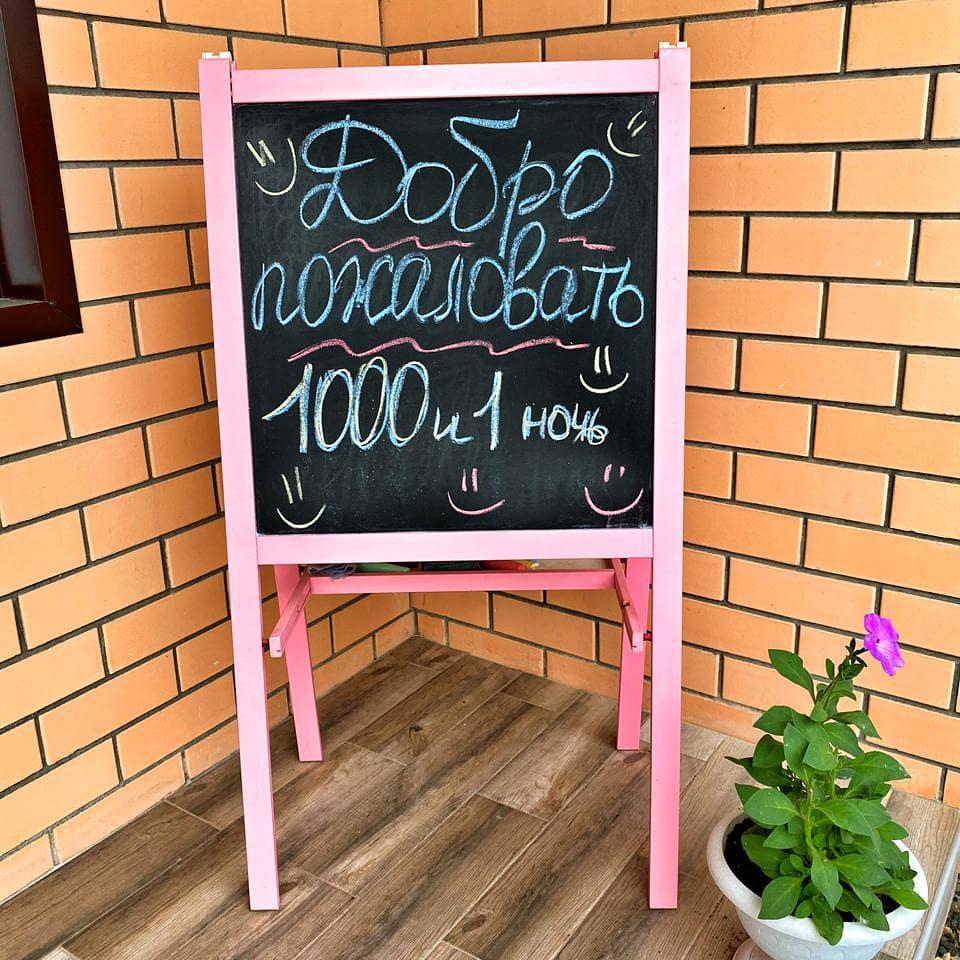 Добро
пожаловать
1000 и 1 ночь